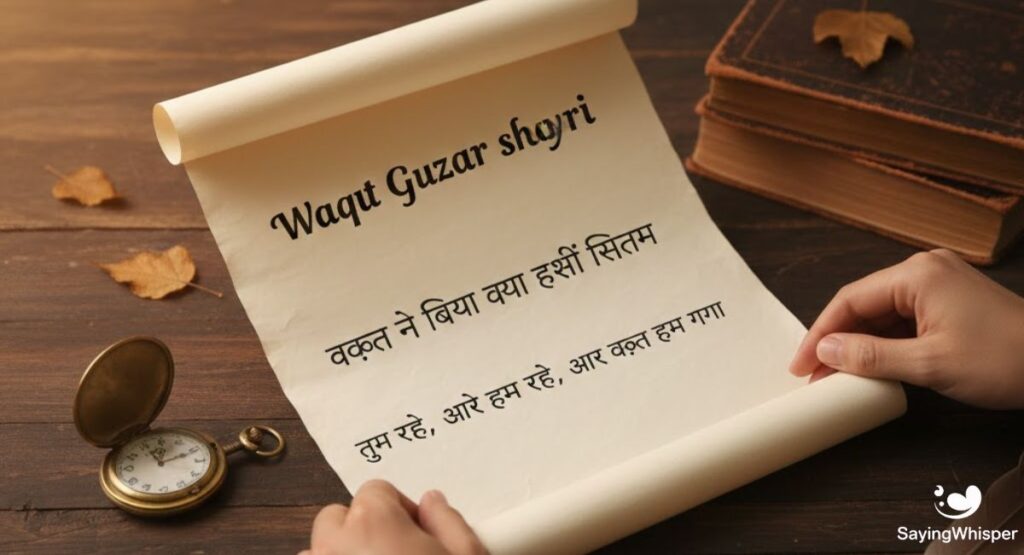 Waqut Guzar shayri
वक़्त ने बिया वया हशीं सितम
तुम रहे, आरे हम रहे, आर वक़्त हम गगा
SayingWhisper